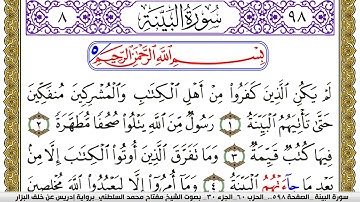 ٩٨ سُورَةُ الْبَيِّنَةِ ٨
بِسْمِ اللَّهِ الرَّحْمَٰنِ الرَّحِيمِ
لَمْ يَكُنِ الَّذِينَ كَفَرُوا مِنْ أَهْلِ الْكِتَابِ وَالْمُشْرِكِينَ مُنفَكِّينَ
حَتَّىٰ تَأْتِيَهُمُ الْبَيِّنَةُ ١ رَسُولٌ مِّنَ اللَّهِ يَتْلُوا صُحُفًا مُّطَهَّرَةً ٢
فِيهَا كُتُبٌ قَيِّمَةٌ ٣ وَمَا تَفَرَّقَ الَّذِينَ أُوتُوا الْكِتَابَ إِلَّا مِنْ
بَعْدِ مَا جَاءَتْهُمُ الْبَيِّنَةُ ٤ وَمَا أُمِرُوا إِلَّا لِيَعْبُدُوا اللَّهَ مُخْلِصِينَ
سورة البينة . الصفحة ٥٩٨ .. الحزب ٦٠ . الجزء ٣٠ . بصوت الشيخ مفتاح محمد السلطني . برواية إدريس عن خلف البزار